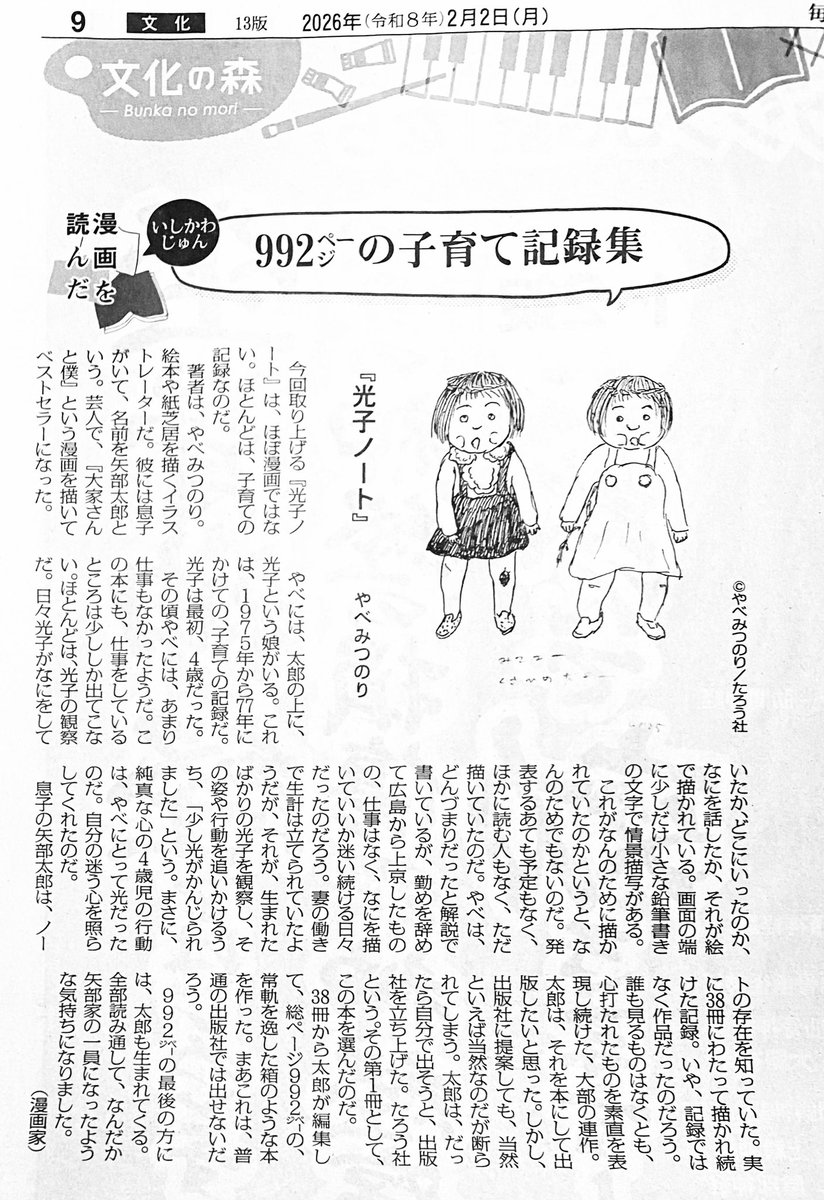 9
文化
13版
2026年(令和8年)2月2日(月)
毎
文化の森
Bunka no mori
漫画を
読んだ
いしかわ
じゅん
992ページの子育て記録集
『光子ノート』
やべみつのり
©やべみつのり／たろう社
今回取り上げる『光子ノ
ート』は、ほぼ漫画ではな
い。ほとんどは、子育ての
記録なのだ。
著者は、やべみつのり。
絵本や紙芝居を描くイラス
トレーターだ。彼には息子
がいて、名前を矢部太郎と
いう。芸人で、『大家さん
と僕』という漫画を描いて
ベストセラーになった。
やべには、太郎の上に、
光子という娘がいる。これ
は、1975年から77年に
かけての、子育ての記録だ。
光子は最初、4歳だった。
その頃やべには、あまり
仕事もなかったようだ。こ
の本にも、仕事をしている
ところは少ししか出てこな
い。ほとんどは、光子の観察
だ。日々光子がなにをして
いたか、どこにいったのか、
なにを話したか、それが絵
で描かれている。画面の端
に少しだけ小さな鉛筆書き
の文字で情景描写がある。
これがなんのために描か
れていたのかというと、な
んのためでもないのだ。発
表するあても予定もなく、
ほかに読む人もなく、ただ
描いていたのだ。やべは、
どんづまりだったと解説で
書いているが、勤めを辞め
て広島から上京したもの
の、仕事はなく、なにを描
いていいか迷い続ける日々
だったのだろう。妻の働き
で生計は立てられていたよ
うだが、それが、生まれた
ばかりの光子を観察し、そ
の姿や行動を追いかけるう
ち、「少し光がかんじられ
ました」という。まさに、
純真な心の4歳児の行動
は、やべにとって光だった
のだ。自分の迷う心を照ら
してくれたのだ。
息子の矢部太郎は、ノー
トの存在を知っていた。実
に38冊にわたって描かれ続
けた記録。いや、記録では
なく作品だったのだろう。
誰も見るものはなくとも、
心打たれたものを素直を表
現し続けた、大部の連作。
太郎は、それを本にして出
版したいと思った。しかし、
出版社に提案しても、当然
といえば当然なのだが断ら
れてしまう。太郎は、だっ
たら自分で出そうと、出版
社を立ち上げた。たろう社
という。その第1冊として、
この本を選んだのだ。
38冊から太郎が編集し
て、総ページ992ページの、
常軌を逸した箱のような本
を作った。まあこれは、普
通の出版社では出せないだ
ろう。
992ページの最後の方に
は、太郎も生まれてくる。
全部読み通して、なんだか
矢部家の一員になったよう
な気持ちになりました。
(漫画家)